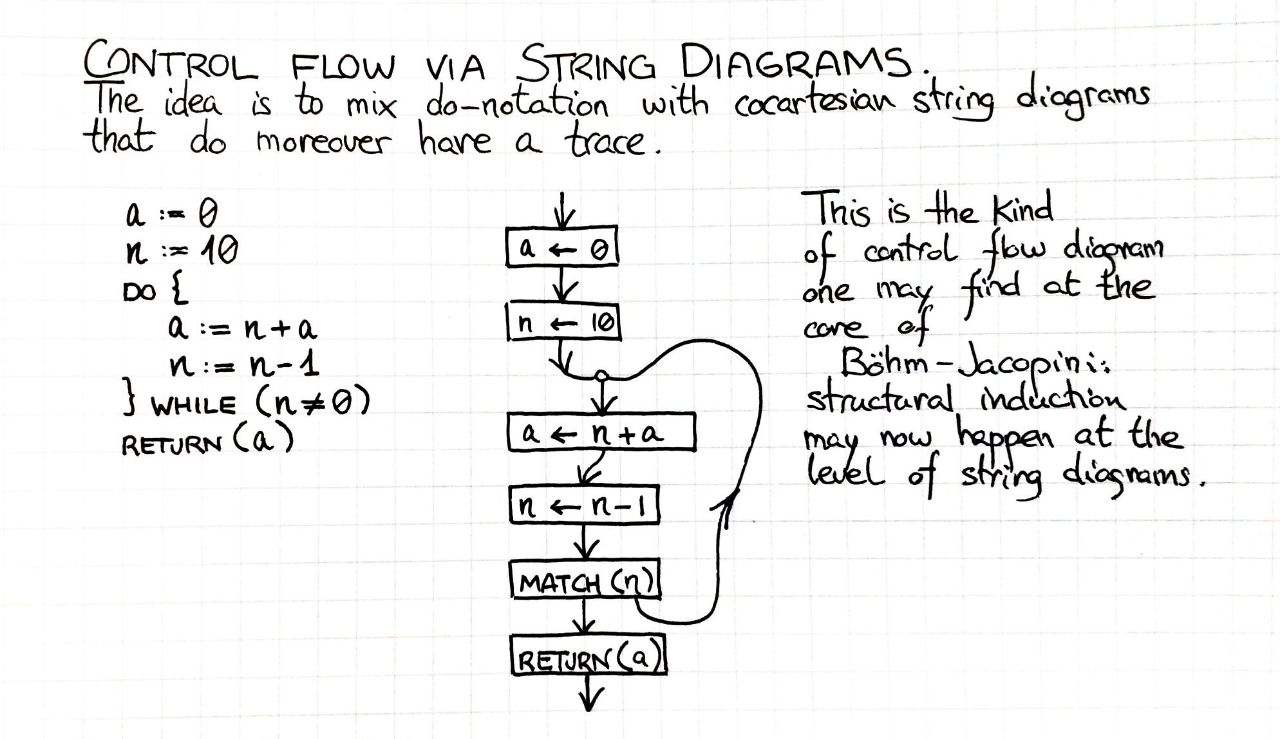 CONTROL FLOW VIA STRING DIAGRAMS.
The idea is to mix do-notation with cocartesian string diagrams
that do moreover have a trace.
a := 0
n := 10
DO {
a := n+a
n := n-1
} WHILE (n≠0)
RETURN (a)
a ← 0
n ← 10
a ← n+a
n ← n-1
MATCH (n)
RETURN (a)
This is the kind
of control flow diagram
one may find at the
core of
Böhm-Jacopini:
structural induction
may now happen at the
level of string diagrams.